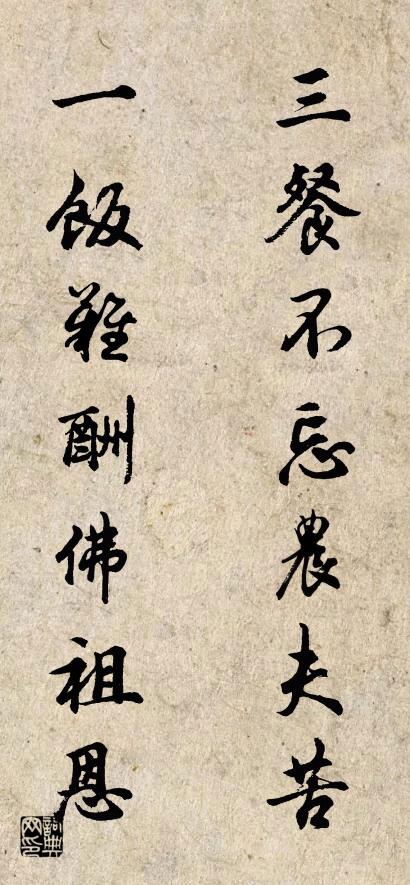 三餐不忘農夫苦
一飯難酬佛祖恩